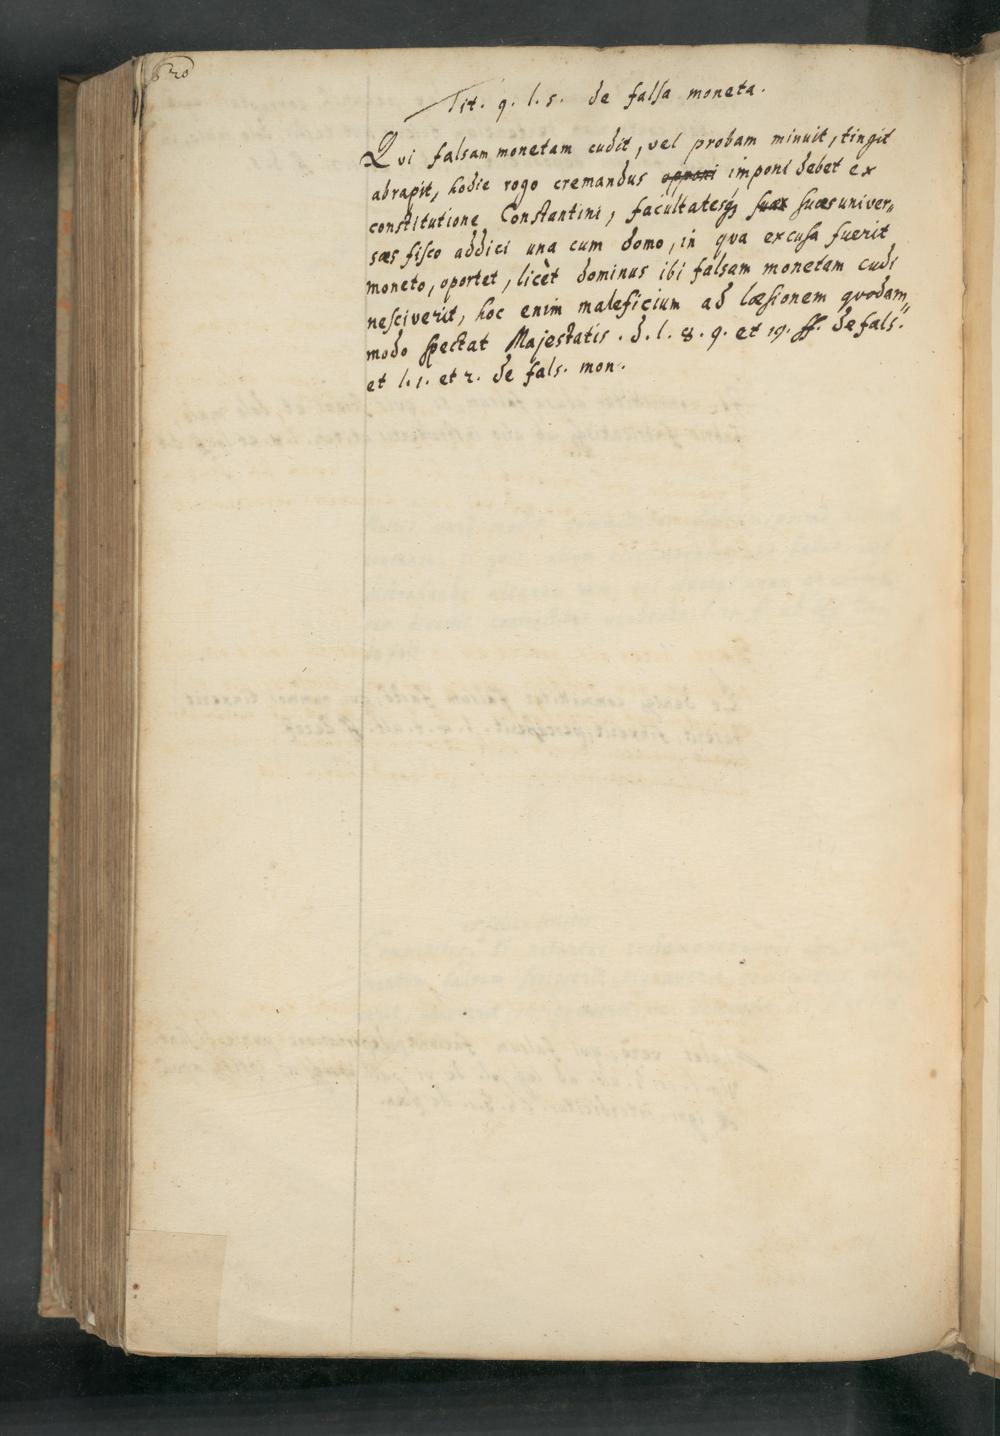 820
Tit. 9. l. 5. de falsa moneta.
Qvi falsam monetam cudit, vel probam minuit, tingit
abrapit, hodie rogo cremandus opponi imponi debet ex
constitutione Constantini, facultatesq; suax suæs univer„
sæs fisco addici una cum domo, in qva excusa fuerit
moneto, oportet, licèt dominus ibi falsam monetam cudi
nesciverit, hoc enim maleficium ad læsionem qvodam„
modo spectat Majestatis. d. l. 8. 9. et 19. ff. de fals.
et l. 1. et 2. de fals. mon.